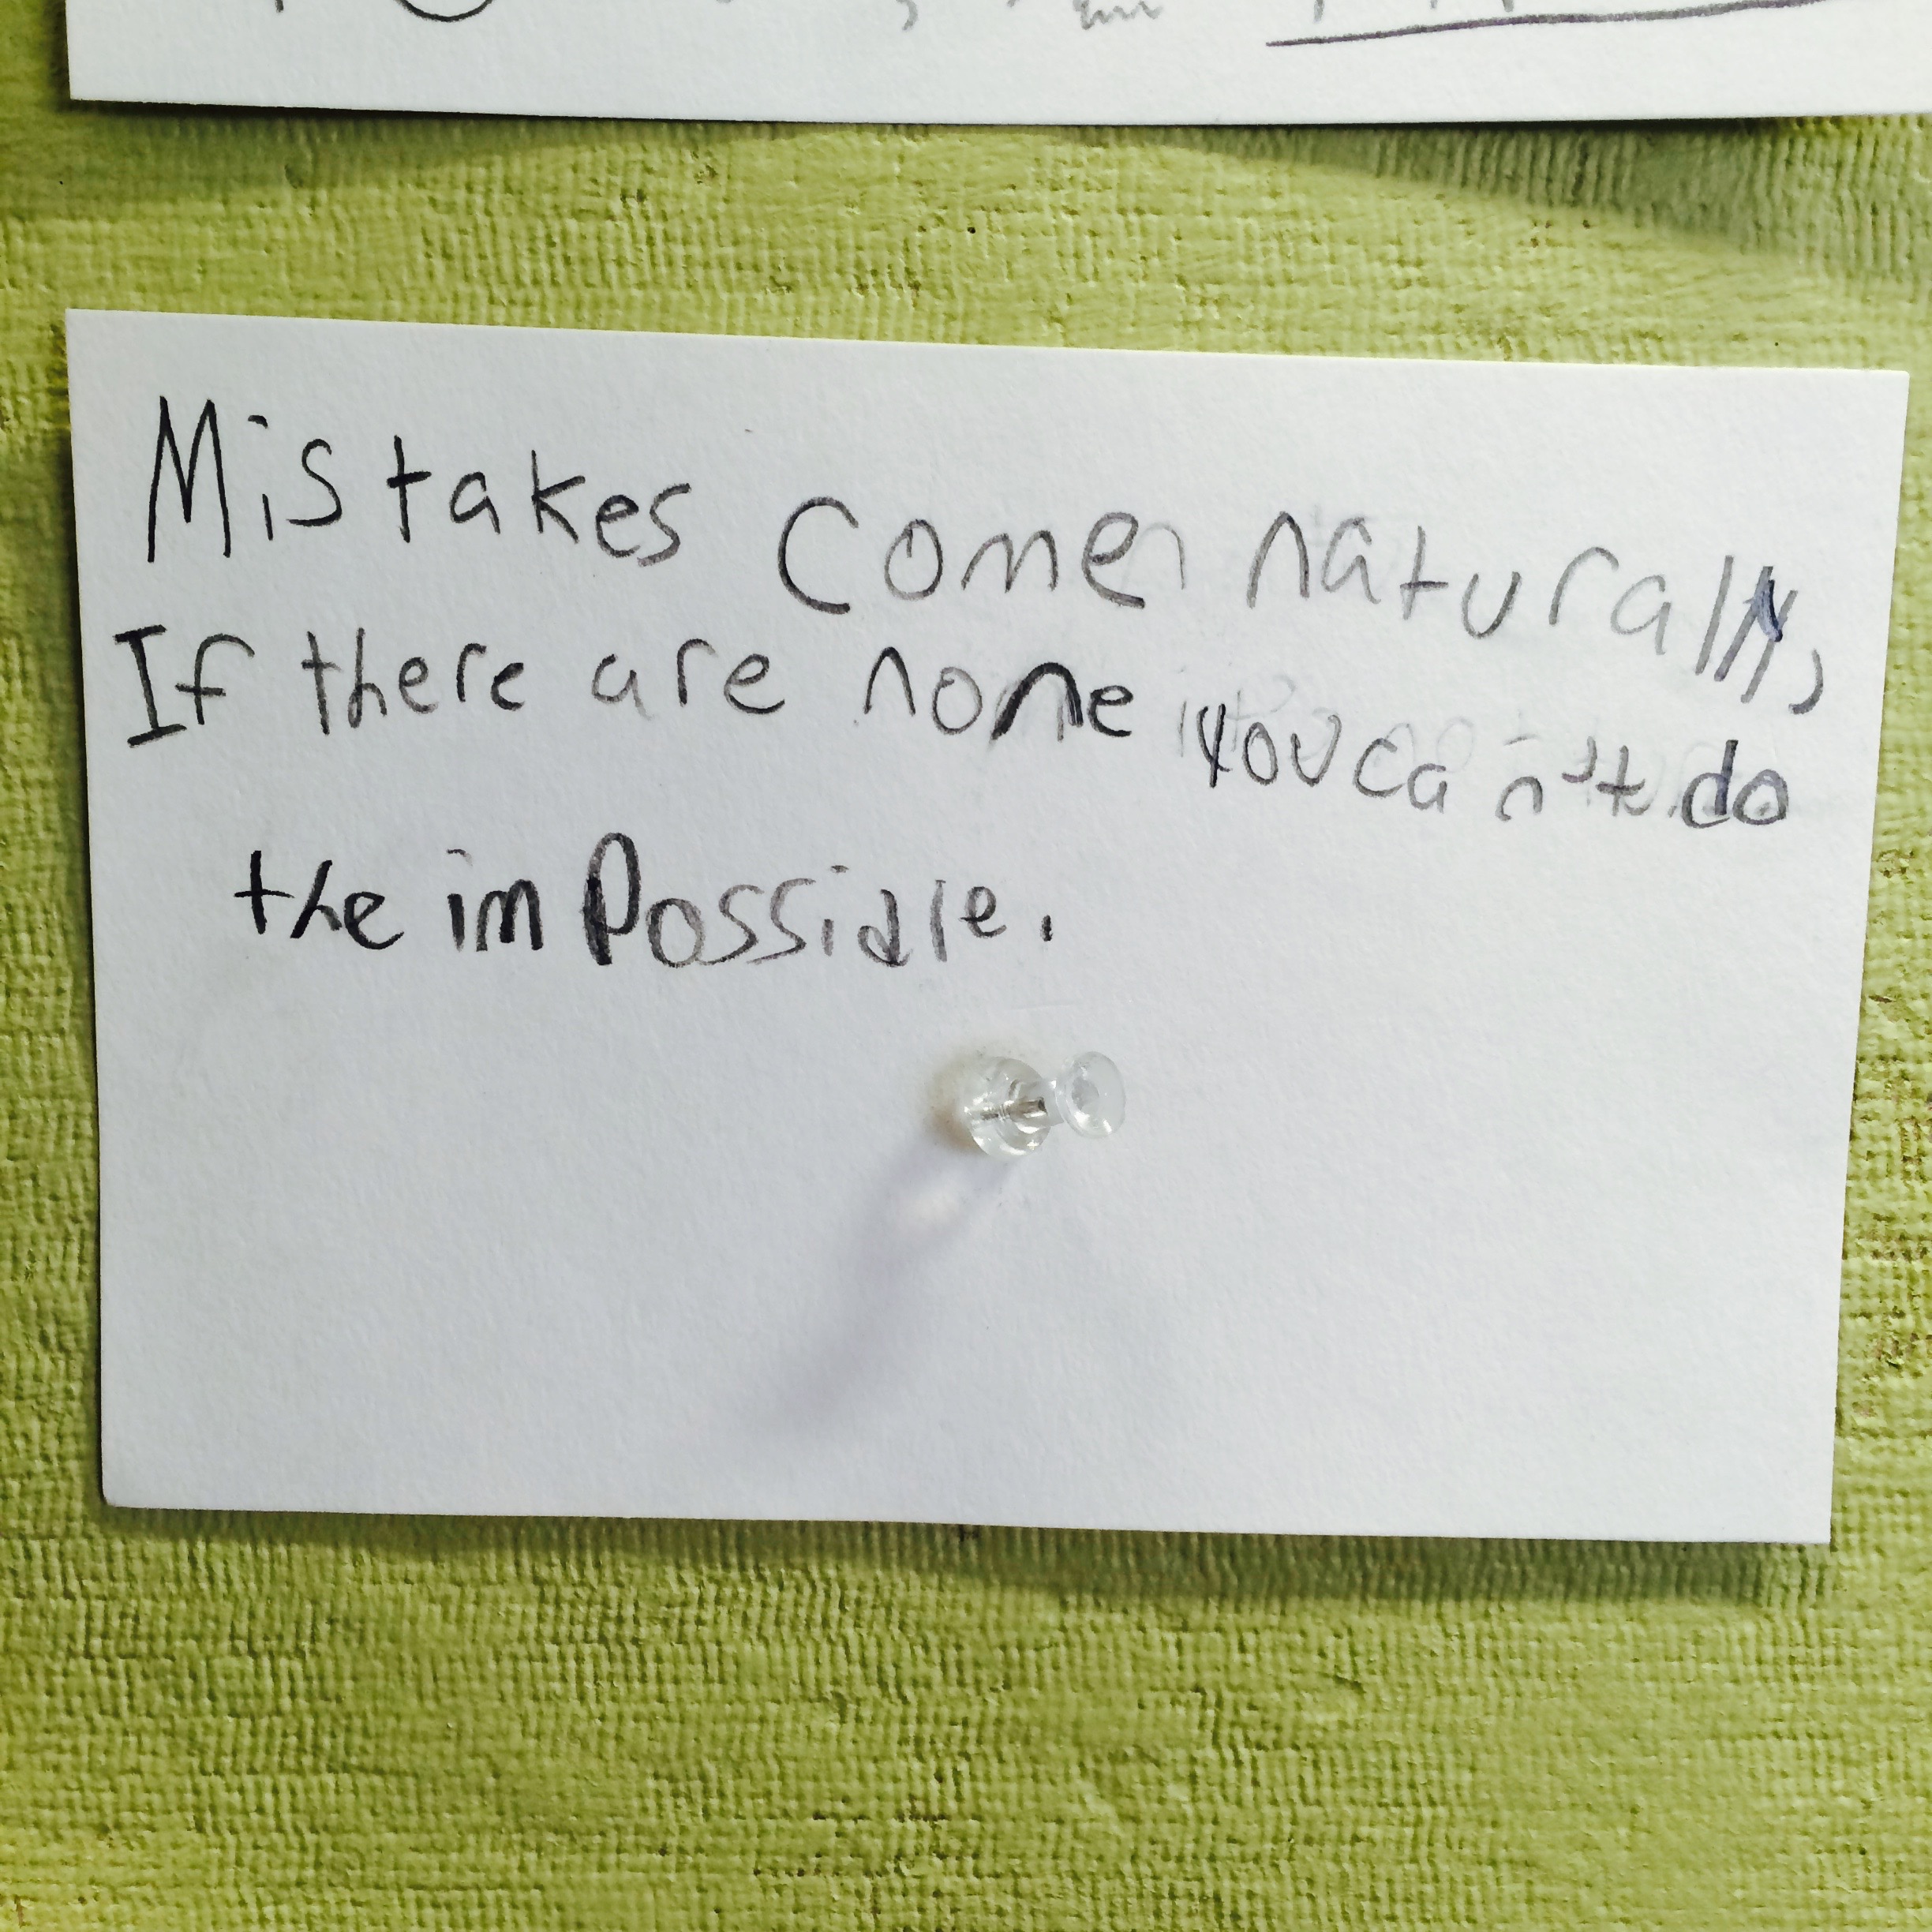 Mistakes come naturally,
If there are none you can't do
the impossiale.